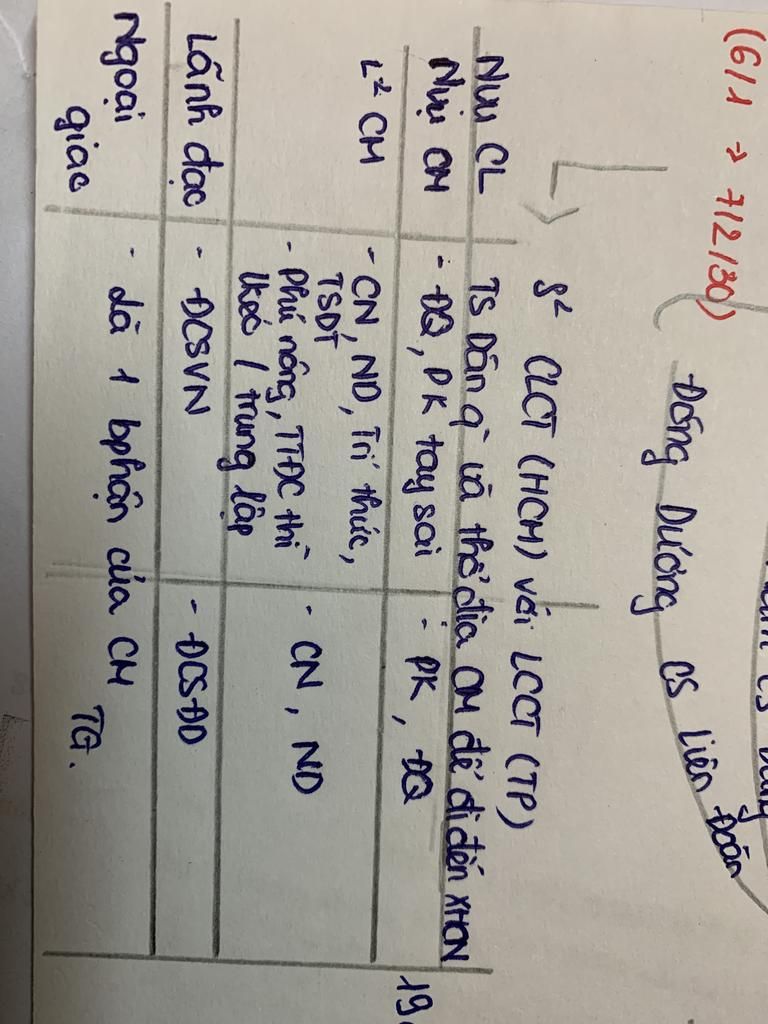 (6/1 → 7/2/30)
Đông Dương CS liên đoàn
S² CLCT (HCM) với LCCT (TP)
Nvụ CL
TS Dân q` và thổ địa CM để đi đến XHCN
Nvụ CM
- ĐQ, PK tay sai
- PK, ĐQ
L² CM
- CN, ND, Trí thức,
TSDT
- Phú nông, TTĐC thì
lkéo / trung lập
- CN, ND
Lãnh đạo
- ĐCSVN
- ĐCSĐD
Ngoại
giao
- Là 1 bphận của CM
TG.
19